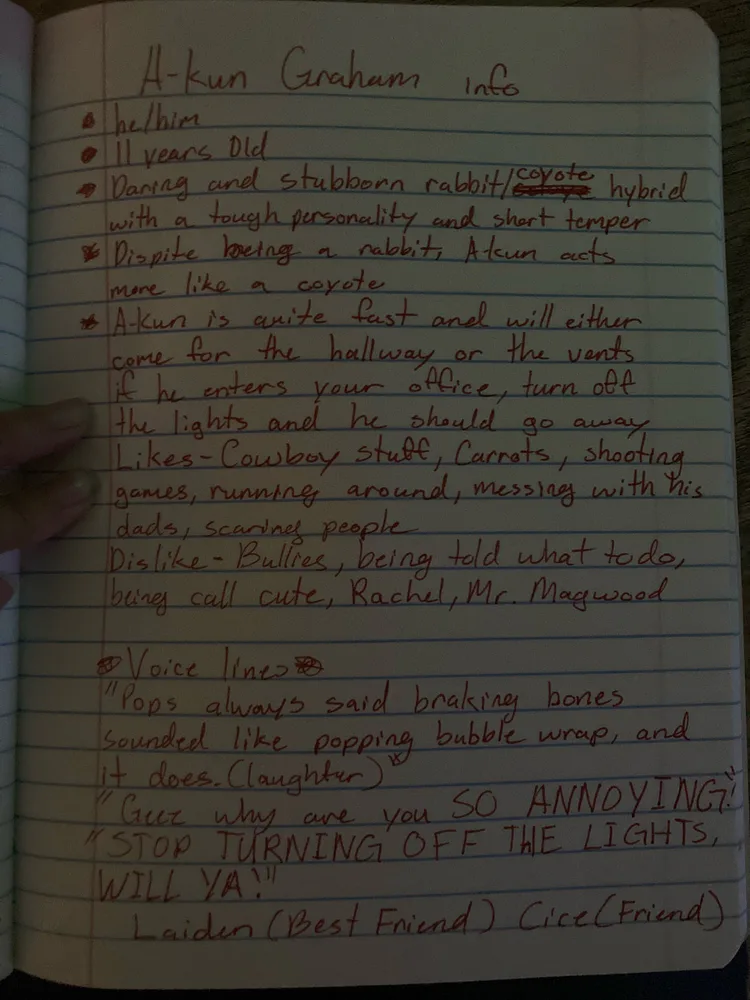 A-kun Graham info
he/him
11 years Old
Daring and stubborn rabbit/coyote hybrid
with a tough personality and short temper
Dispite being a rabbit, A-kun acts
more like a coyote
A-kun is quite fast and will either
come for the hallway or the vents
if he enters your office, turn off
the lights and he should go away
Likes-Cowboy stuff, Carrots, shooting
games, running around, messing with his
dads, scaring people
Dislike-Bullies, being told what to do,
being call cute, Rachel, Mr. Magwood
Voice lines
"Pops always said braking bones
sounded like popping bubble wrap, and
it does. (laughter)"
"Geez why are you SO ANNOYING!"
"STOP TURNING OFF THE LIGHTS,
WILL YA!"
Laiden (Best Friend) Cice (Friend)